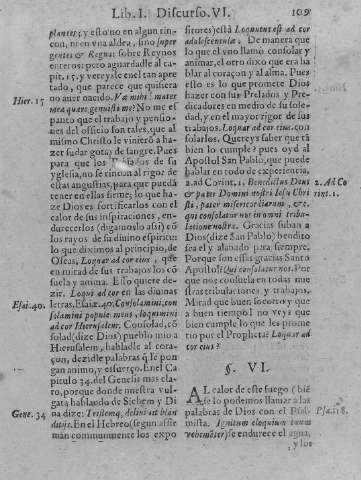 Lib. I. Discurso. VI. 109
plantes; y esto no en algun rin-
con, ni en vna aldea, sino super
gentes & Regna: sobre Reynos
enteros: pero aguardadle al ca-
pit. 15. y vereysle en el tan apre
tado, que parece que quisiera
no auer nacido. Væ mihi! mater
Hier. 15
mea quare genuisti me? No me es
panto que el trabajo y pensio-
nes del officio son tales, que al
mismo Christo le vinierõ a ha-
zer sudar gotas de sangre. Pues
para que los Prelados de su
yglesia, no se rindan al rigor de
estas angustias, para que pueda
tener en ellas firme; lo que ha-
ze Dios es fortificarlos con el
calor de sus inspiraciones, en-
durecerlos (digamoslo assi) cõ
los rayos de su diuino espiritu:
lo que diximos al principio, de
Oseas, Loquar ad cor eius, que
en mitad de sus trabajos los cõ
suela y anima. Esto quiere de-
zir. Loqui ad cor en las diuinas
letras, Esaiæ. 40. Consolamini, con
Esai. 40.
solamini popule meus, loquimini
ad cor Hierusalem, Consolad, cõ
solad (dize Dios) pueblo mio a
Hierusalem, habladle al cora-
çon, dezidle palabras q̃ le pon
gan animo, y esfuerço. En el Ca
pitulo 34. del Genesis mas cla-
ro, porque donde nuestra vul-
gata hablando de Sichem y Di
na dize: Tristemq, deliniuit blan
Gene. 34
ditijs. En el Hebreo (segun assir
man communmente los expo
sitores) està Loquutus est ad cor
adolescentulæ? De manera que
lo que el vno llamò consolar y
animar, el otro dixo que era ha
blar al coraçon y al alma. Pues
esto es lo que promete Dios
hazer con sus Prelados y Pre-
dicadores en medio de su sole-
dad, y en el mayor rigor de sus
trabajos. Loquar ad cor eius, con
solarlos. Quereys saber que tã
bien lo cumple? pues oyd al
Apostol San Pablo, que puede
hablar en todo de experiencia,
2. ad Corint. 1. Benedictus Deus
2. Ad Co
& pater Domini nostri Iesu Chri
rint. 1.
sti, pater misericordiarum, &c.
qui consolatur nos in omni tribu-
latione nostra. Gracias suban a
Dios (dize San Pablo) bendito
sea el y alabado para siempre.
Porque son essas gracias Santo
Apostol? Qui consolatur nos. Por
que nos consuela en todas nue
stras tribulaciones, y trabajos.
Mirad que buen socorro y que
a buen tiempo! no veys que
bien cumple lo que les prome
tio por el Propheta? Loquar ad
cor eius?
§. VI.
AL calor de este fuego (biẽ
se lo podemos llamar a las
palabras de Dios con el Psal-
Psa. 118.
mista. Ignitum eloquium tuum
vehemẽter) se endurece el agua,
y los